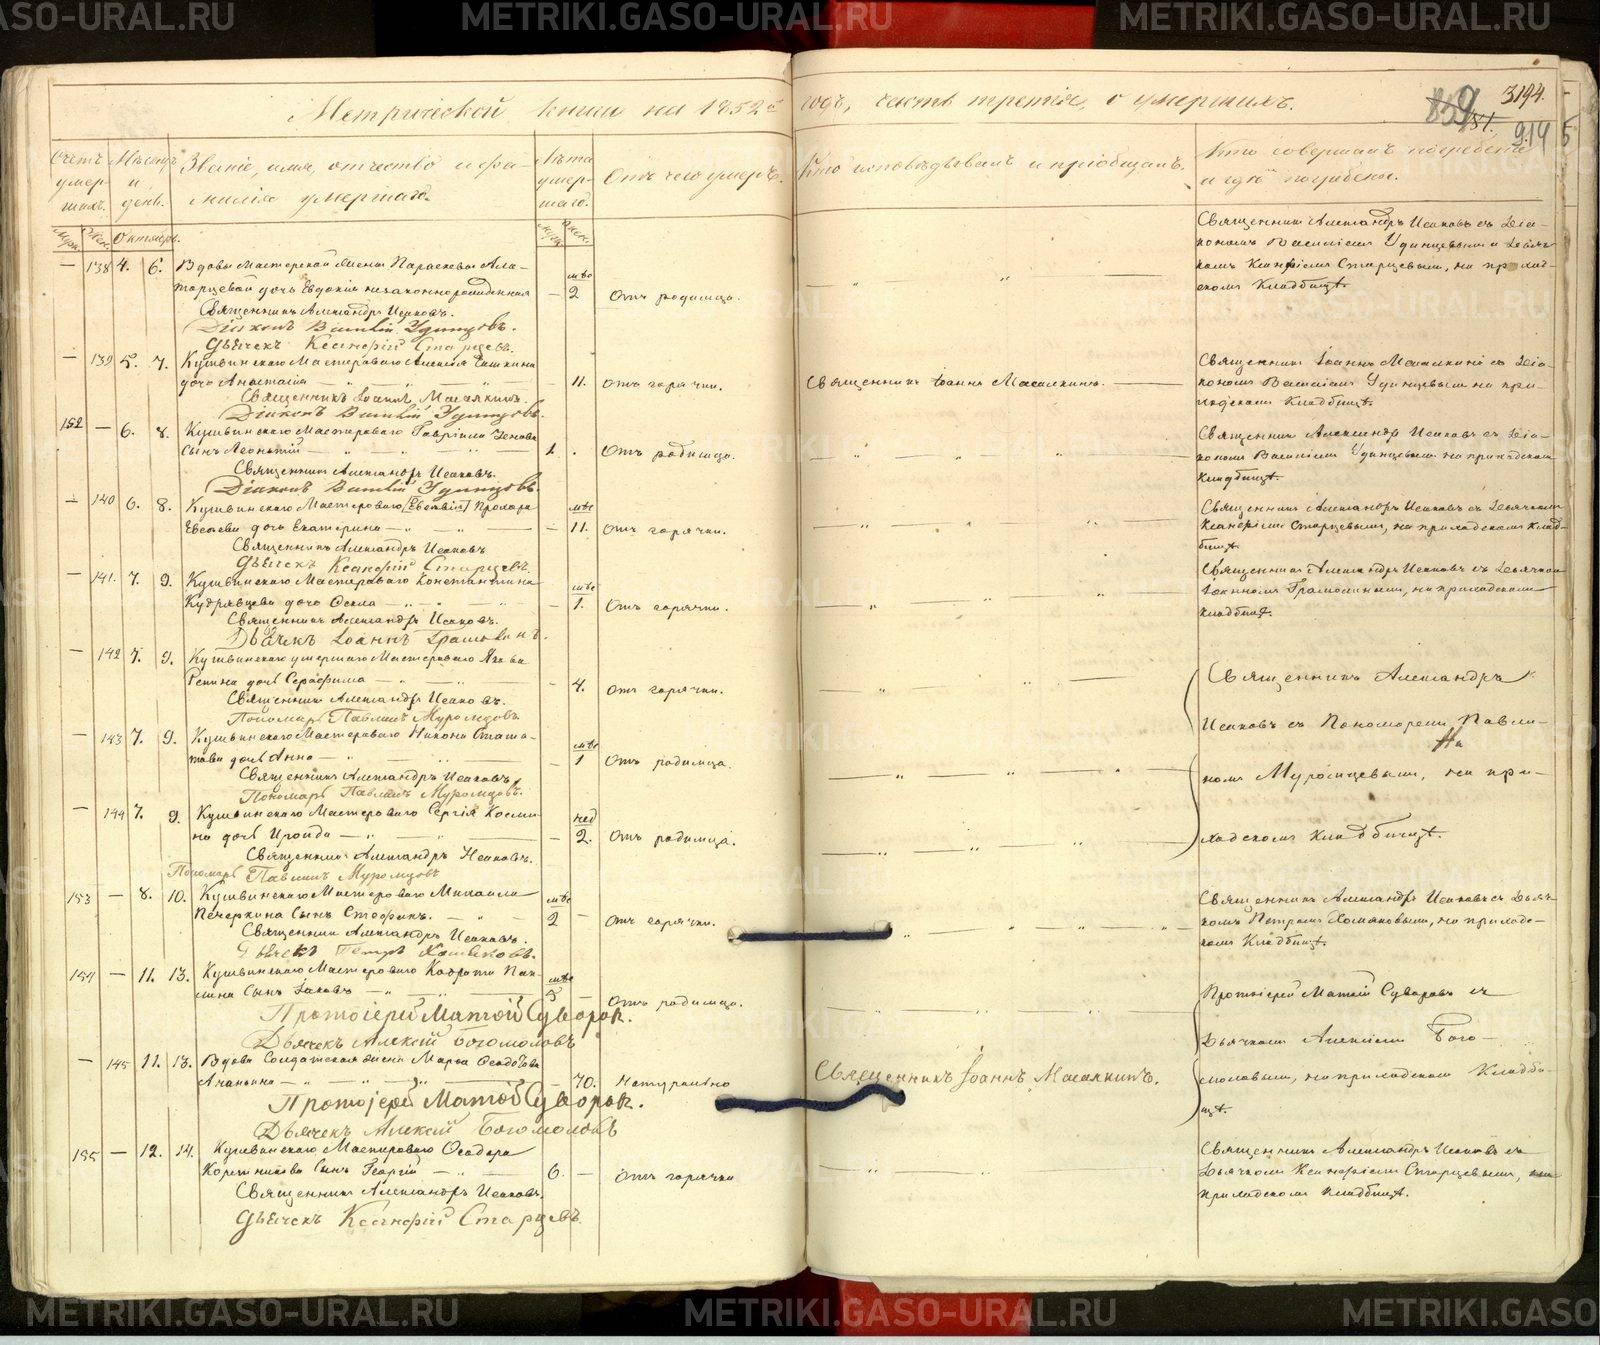 METRIKI.GASO-URAL.RU
Метрической книги на 1852й годъ, часть третія, о умершихъ.
3194.
914
Счетъ умер-шихъ.
Мѣсяцъ и день.
Званіе, имя, отчество и фа-
милія умершаго.
Лѣта умер-шаго.
Отъ чего умеръ.
Кто исповѣдывалъ и пріобщалъ.
Кто совершалъ погребеніе
и гдѣ погребены.
Муж.
Жен.
Октябрь.
Муж.
Жен.
— 138 4. 6. Вдовы Мастерской жены Параскевы Ала-
торцевой дочь Евдокія незаконнорожденная — мѣс 2 Отъ родимца.
Священникъ Александръ Исаковъ.
Діаконъ Василій Удинцовъ.
Дьячекъ Ксенофій Старцевъ.
Священникъ Александръ Исаковъ съ Діа-
кономъ Василіемъ Удинцевымъ и Дьяч-
комъ Ксенофіемъ Старцевымъ, на приход-
скомъ Кладбищѣ.
— 139 5. 7. Кушвинскаго Мастероваго Алексія
дочь Анастасія — 11. Отъ горячки. Священникъ Іоаннъ Масалкинъ.
Священникъ Іоаннъ Масалкинъ.
Діаконъ Василій Удинцовъ.
Священникъ Іоаннъ Масалкинъ съ Діа-
кономъ Василіемъ Удинцевымъ на при-
ходскомъ Кладбищѣ.
152 — 6. 8. Кушвинскаго Мастероваго Гавріила
Сынъ Леонтій — 1. Отъ родимца.
Священникъ Александръ Исаковъ.
Діаконъ Василій Удинцовъ.
Священникъ Александръ Исаковъ съ Діа-
кономъ Василіемъ Удинцевымъ на приходскомъ
Кладбищѣ.
— 140 6. 8. Кушвинскаго Мастероваго Прохора
Евсѣева дочь Екатерина — мѣс 11. Отъ горячки.
Священникъ Александръ Исаковъ
Дьячекъ Ксенофій Старцевъ.
Священникъ Александръ Исаковъ съ Дьячкомъ
Ксенофіемъ Старцевымъ, на приходскомъ Клад-
бищѣ.
— 141. 7. 9. Кушвинскаго Мастероваго Константина
Кудрявцева дочь Фекла — мѣс 1. Отъ горячки.
Священникъ Александръ Исаковъ.
Дьячекъ Іоаннъ Грамолинъ.
Священникъ Александръ Исаковъ съ Дьячкомъ
Іоанномъ Грамолинымъ, на приходскомъ
Кладбищѣ.
— 142 7. 9. Кушвинскаго умершаго Мастероваго Якова
Репина дочь Серафима — 4. Отъ горячки.
Священникъ Александръ Исаковъ.
Пономарь Павлинъ Муромцовъ.
Священникъ Александръ
Исаковъ съ Пономаремъ Павли-
номъ Муромцевымъ, на при-
ходскомъ Кладбищѣ.
— 143 7. 9. Кушвинскаго Мастероваго Никона
дочь Анна — мѣс 1 Отъ родимца.
Священникъ Александръ Исаковъ.
Пономарь Павлинъ Муромцовъ.
— 144 7. 9. Кушвинскаго Мастероваго Сергія Косми-
на дочь Ираида — нед 2. Отъ родимца.
Священникъ Александръ Исаковъ.
Пономарь Павлинъ Муромцовъ
153 — 8. 10. Кушвинскаго Мастероваго Михаила
Печеркина Сынъ Стефанъ. — мѣс 2 — Отъ горячки.
Священникъ Александръ Исаковъ.
Дьячекъ Петръ Хомяковъ.
Священникъ Александръ Исаковъ съ Дьяч-
комъ Петромъ Хомяковымъ, на приход-
скомъ Кладбищѣ.
154 — 11. 13. Кушвинскаго Мастероваго Кодрата Пах-
Сынъ Іаковъ — мѣс 5 — Отъ родимца.
Протоіерей Матѳій Суворовъ.
Дьячекъ Алексій Богомоловъ
Протоіерей Матѳій Суворовъ съ
Дьячкомъ Алексіемъ Бого-
моловымъ, на приходскомъ Кладби-
щѣ.
— 145 11. 13. Вдова Солдатская жена Марѳа
Ананьина — 70. Натурально Священникъ Іоаннъ Масалкинъ.
Протоіерей Матѳій Суворовъ.
Дьячекъ Алексій Богомоловъ
155 — 12. 14. Кушвинскаго Мастероваго Ѳеодора
Сынъ Георгій — 6. — Отъ горячки
Священникъ Александръ Исаковъ.
Дьячекъ Ксенофій Старцевъ.
Священникъ Александръ Исаковъ съ
Дьячкомъ Ксенофіемъ Старцевымъ, на
приходскомъ Кладбищѣ.
METRIKI.GASO-URAL.RU